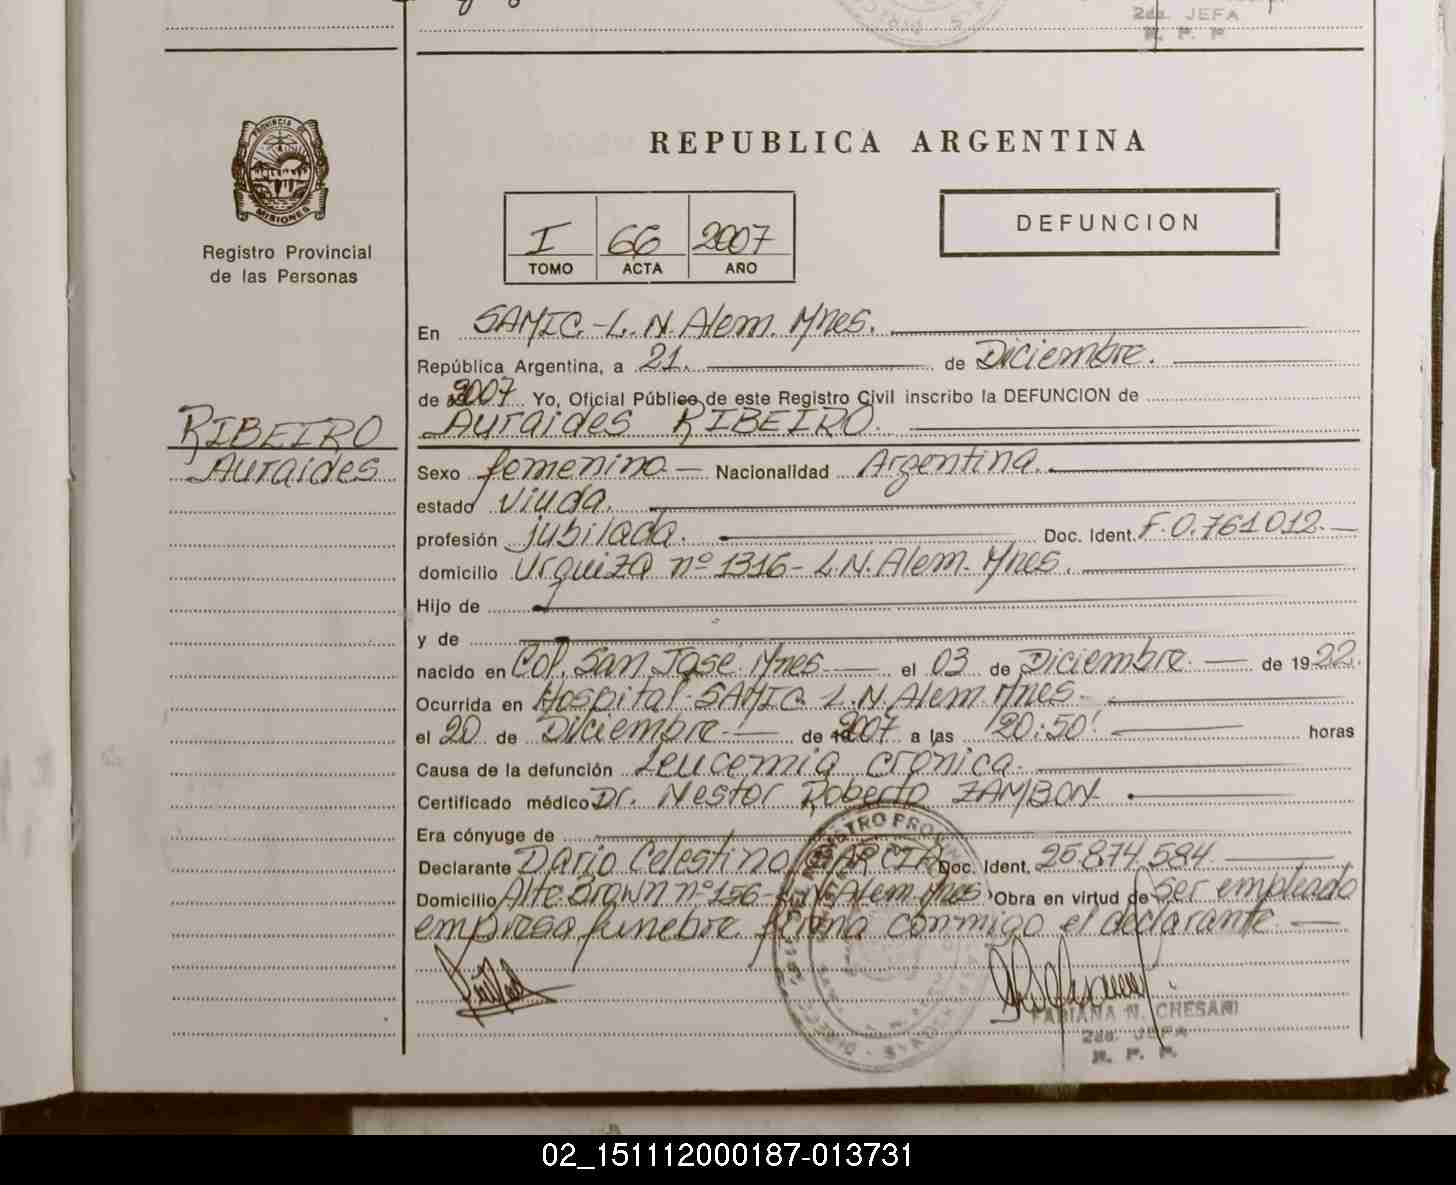 2da. JEFA
R. P. P.
PROVINCIA DE
MISIONES
Registro Provincial
de las Personas
REPUBLICA ARGENTINA
I 66 2007
TOMO ACTA AÑO
DEFUNCION
En SAMIC.-L. N. Alem. Mnes.
República Argentina, a 21. de Diciembre.
de 2007 Yo, Oficial Público de este Registro Civil inscribo la DEFUNCION de
Auraides RIBEIRO.
RIBEIRO
Auraides
Sexo femenino - Nacionalidad Argentina.
estado viuda.
profesión jubilada. Doc. Ident. F. 0.761.012.-
domicilio Urquiza nº 1316- L.N. Alem. Mnes.
Hijo de
y de
nacido en Col. San José. Mnes - el 03 de Diciembre - de 1922.
Ocurrida en Hospital-SAMIC. L.N. Alem. Mnes.-
el 20 de Diciembre.- de 2007 a las 20:50' horas
Causa de la defunción Leucemia crónica.
Certificado médico Dr. Nestor Roberto ZAMBON.
Era cónyuge de
Declarante Dario Celestino GARCIA Doc. Ident. 25.874.584.
Domicilio Alte. Brown nº 156- L.N. Alem. Mnes. Obra en virtud de ser empleado
empresa funebre. firma conmigo el declarante.-
FABIANA N. CHESANI
2da. JEFA
R. P. P.
02_151112000187-013731